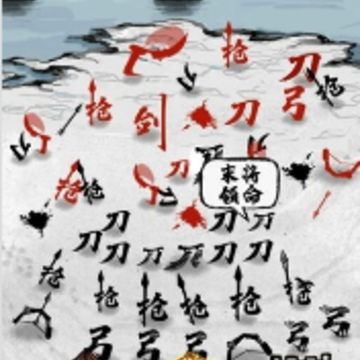 枪
刀
枪
枪
弓
剑
刀
刀
末将
领命
枪
枪
刀
刀
刀
刀
刀
刀
刀
刀
刀
枪
枪
枪
枪
枪
枪
弓
弓
弓
弓
弓